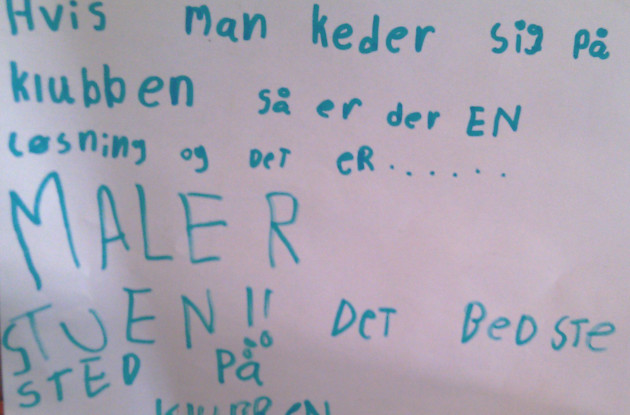 Hvis man keder sig på
klubben så er der EN
løsning og DET ER......
MALER
STUEN!! DET BEDSTE
STED PÅ
KLUBBEN